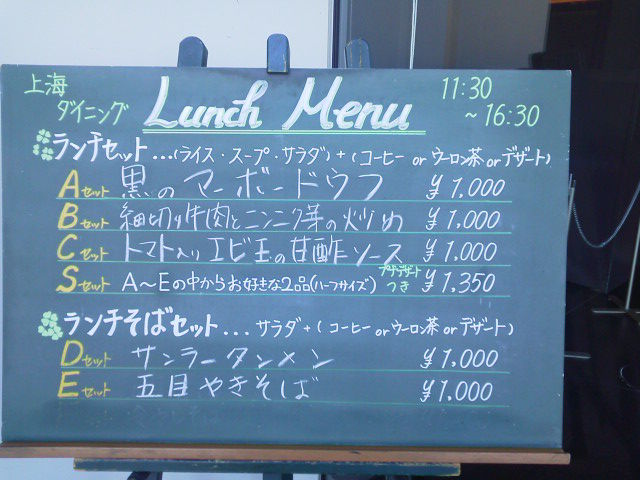 上海
ダイニング
Lunch Menu
11:30
~16:30
ランチセット...(ライス・スープ・サラダ)+(コーヒー or ウーロン茶 or デザート)
Aセット 黒のマーボードウフ ¥1,000
Bセット 細切り牛肉とニンニク芽の炒め ¥1,000
Cセット トマト入りエビ玉の甘酢ソース ¥1,000
Sセット A~Eの中からお好きな2品(ハーフサイズ) プチデザートつき ¥1.350
ランチそばセット... サラダ+(コーヒー or ウーロン茶 or デザート)
Dセット サンラータンメン ¥1,000
Eセット 五目やきそば ¥1,000